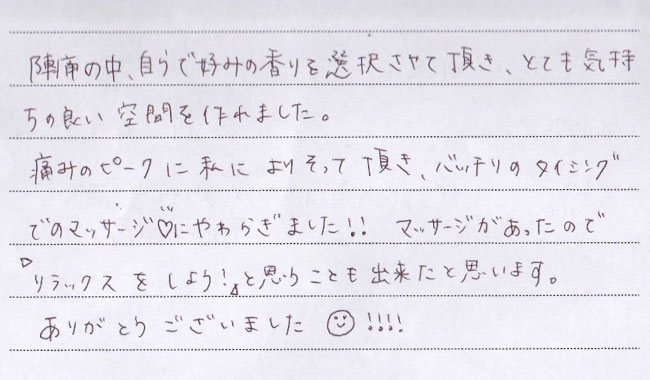 陣痛の中、自らで好みの香りを選択させて頂き、とても気持
ちの良い空間を作れました。
痛みのピークに私によりそって頂き、バッチリのタイミング
でのマッサージ♡にやわらぎました!! マッサージがあったので
「リラックスをしよう!」と思うことも出来たと思います。
ありがとうございました ☺ !!!!